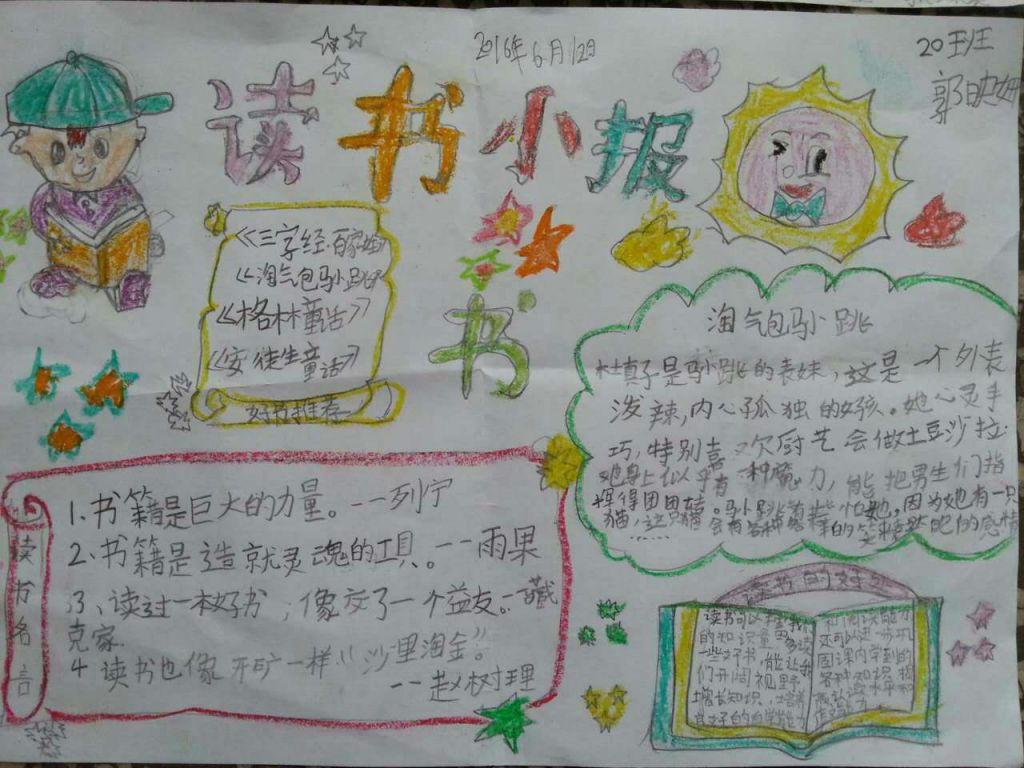 2016年6月12日
20班
郭映姗
读书小报
《三字经.百家姓》
《淘气包马小跳》
《格林童话》
《安徒生童话》
好书推荐
书
淘气包马小跳
杜真子是马小跳的表妹,这是一个外表
泼辣,内心孤独的女孩。她心灵手
巧,特别喜欢厨艺会做土豆沙拉.
她身上似乎有一种魔力,能把男生们指
挥得团团转。马小跳有些怕她。因为她有一只
猫,这只猫会有各种各样的笑
......
读书名言
1.书籍是巨大的力量。——列宁
2.书籍是造就灵魂的工具。——雨果
3、读过一本好书,像交了一个益友。——臧
克家
4 读书也像开矿一样“沙里淘金”
——赵树理
读书的好处
读书可以
的知识量
一些好书,能让我
们开阔视野
增长知识,培养
良好的自学能力
和阅读能力
还可以进一步巩
固课内学到的
各种知识